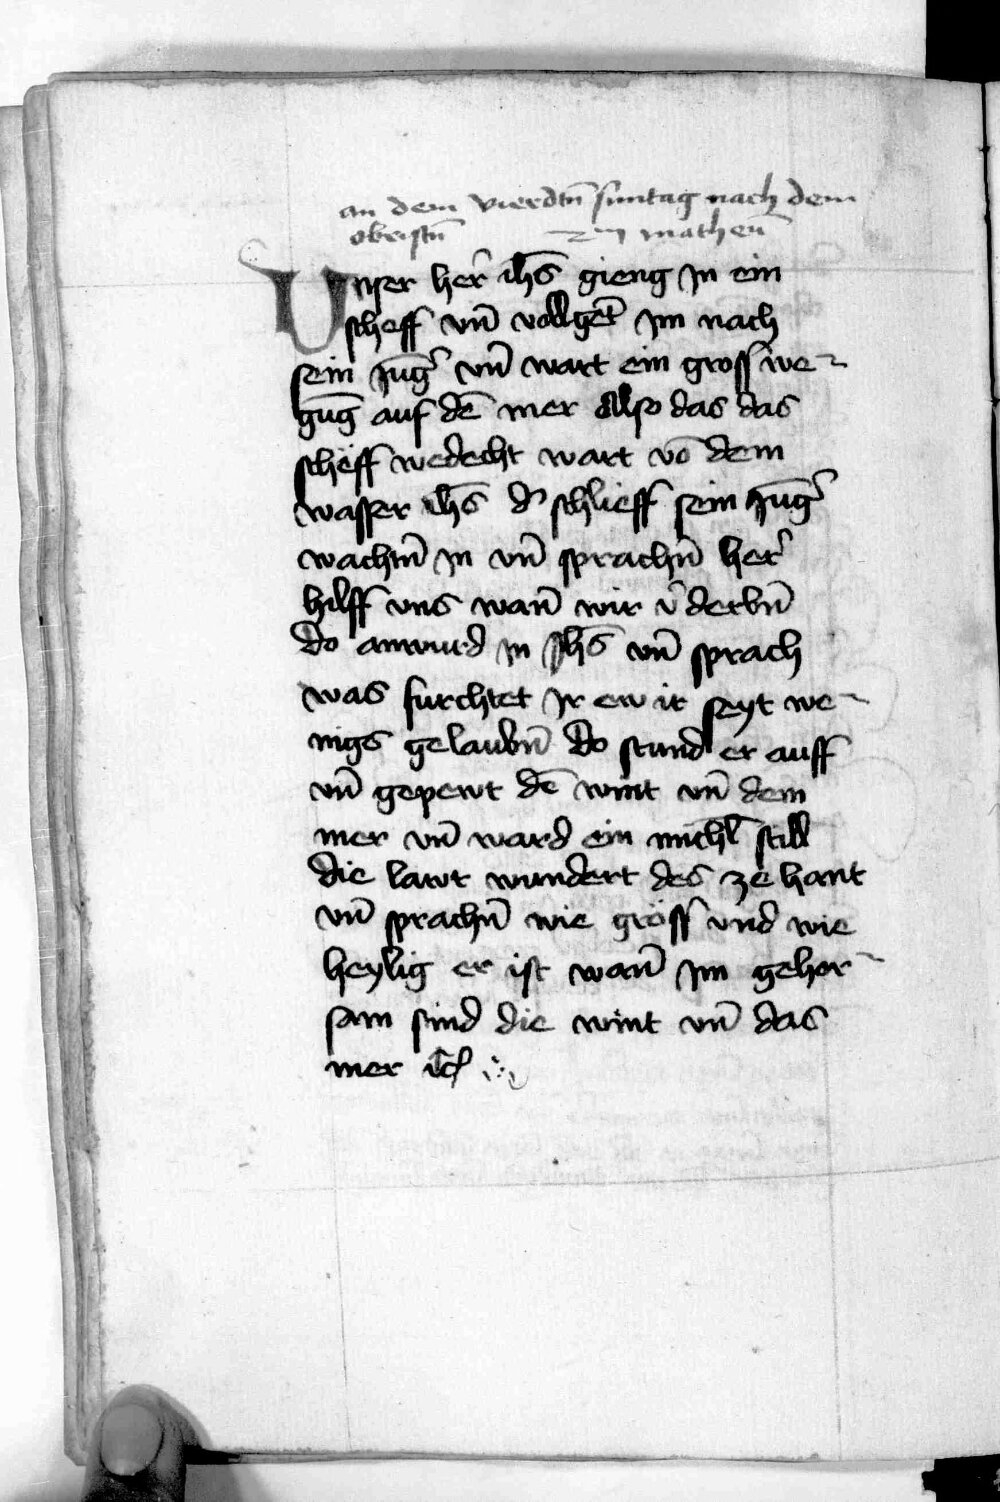 an dem vierdtn̄ suntag nach dem
obristn̄ zm̄ matheū
Unser her̄ ih̄s gieng Jn ein
scheff vn̄ vollget̄ Jm nach
sein Jūg̉ vn̄ wart ein gross we¬
gūg auf dē mer Also das das
scheff wedecht wart vō dem
wasser ih̄s d̉ schlieff sein Jūg̉
wachtn̄ Jn vn̄ sprachn̄ her̄
hilff vns wan̄ wir v̉derbn̄
do antwurd Jn Jh̄s vn̄ sprach
was furchtet Jr ew ir seyt we¬
nigs gelaubn̄ do stund er auff
vn̄ gepewt dē wint vn̄ dem
mer vn̄ ward ein michl̄ still
die lawt wundert des ze hant
vn̄ sprachn̄ wie gröss vnd wie
heylig er ist wan̄ Jm gehor¬
sam sind die wint vn̄ das
mer